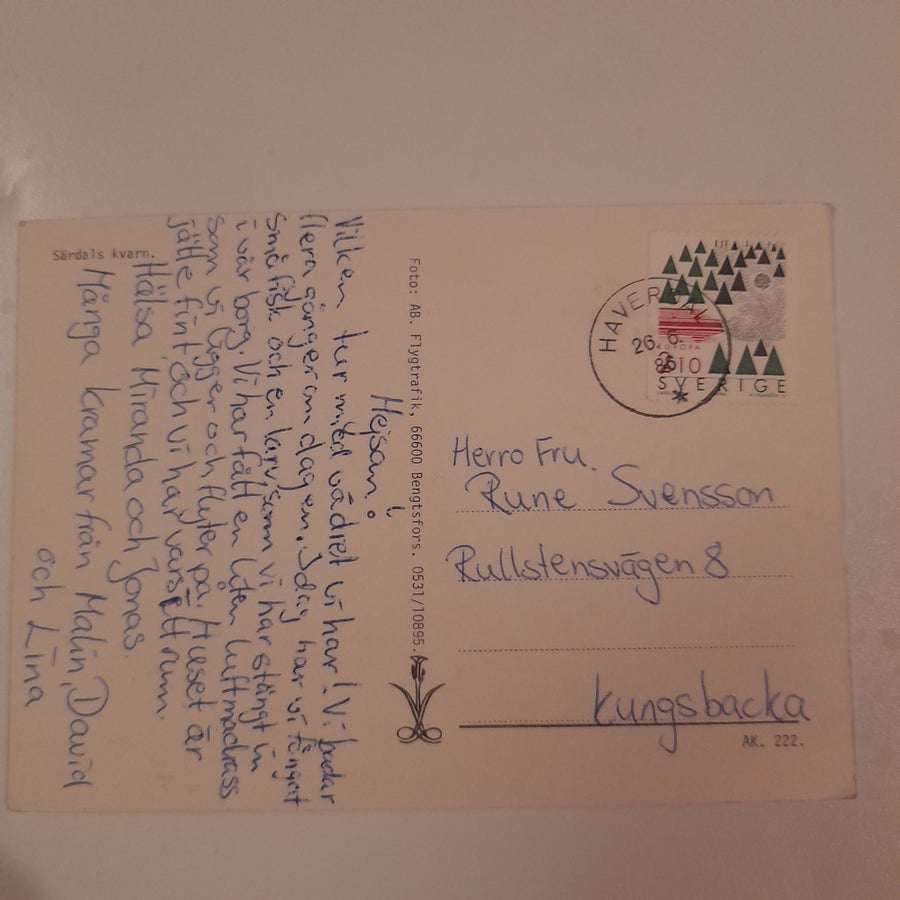 Särdals kvarn.
Hejsan!
Vilken tur med vädret vi har! Vi badar
flera gånger om dagen. Idag har vi fångat
småfisk och en larv, som vi har stängt in
i vår borg. Vi har fått en liten luftmadrass
som vi ligger och flyter på. Huset är
jätte fint och vi har varsitt rum.
Hälsa Miranda och Jonas.
Många kramar från Malin, David
och Lina
Foto: AB. Flygtrafik, 66600 Bengtsfors. 0531/10895.
HAVERDAL
26.6.
86
EUROPA
210
SVERIGE
Herro Fru.
Rune Svensson
Rullstensvägen 8
Kungsbacka
AK. 222.